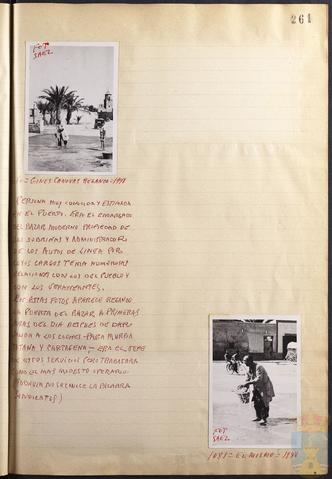 261
FOT
SAEZ
= GINES CANOVAS
PERSONA MUY CONOCIDA Y ESTIMADA
EN EL PUERTO. ERA EL ENCARGADO
DEL BAZAR MODERNO PROPIEDAD DE
SUS SOBRINAS Y ADMINISTRADOR
DE LOS AUTOS DE LINEA. POR
SUS CARGOS TENIA NUMEROSAS
RELACIONES CON LOS DEL PUEBLO Y
CON LOS VERANEANTES.
EN ESTAS FOTOS APARECE
LA PUERTA DEL BAZAR A PRIMERAS
HORAS DEL DIA DESPUES DE DAR
A LOS COCHES PARA MURCIA
Y CARTAGENA,- ERA EL JEFE
DE ESTOS SERVICIOS PERO TRABAJABA
COMO EL MAS MODESTO OPERARIO
TODAVIA NO SE CONOCE LA PALABRA
FOT
SAEZ
= EL MISMO =